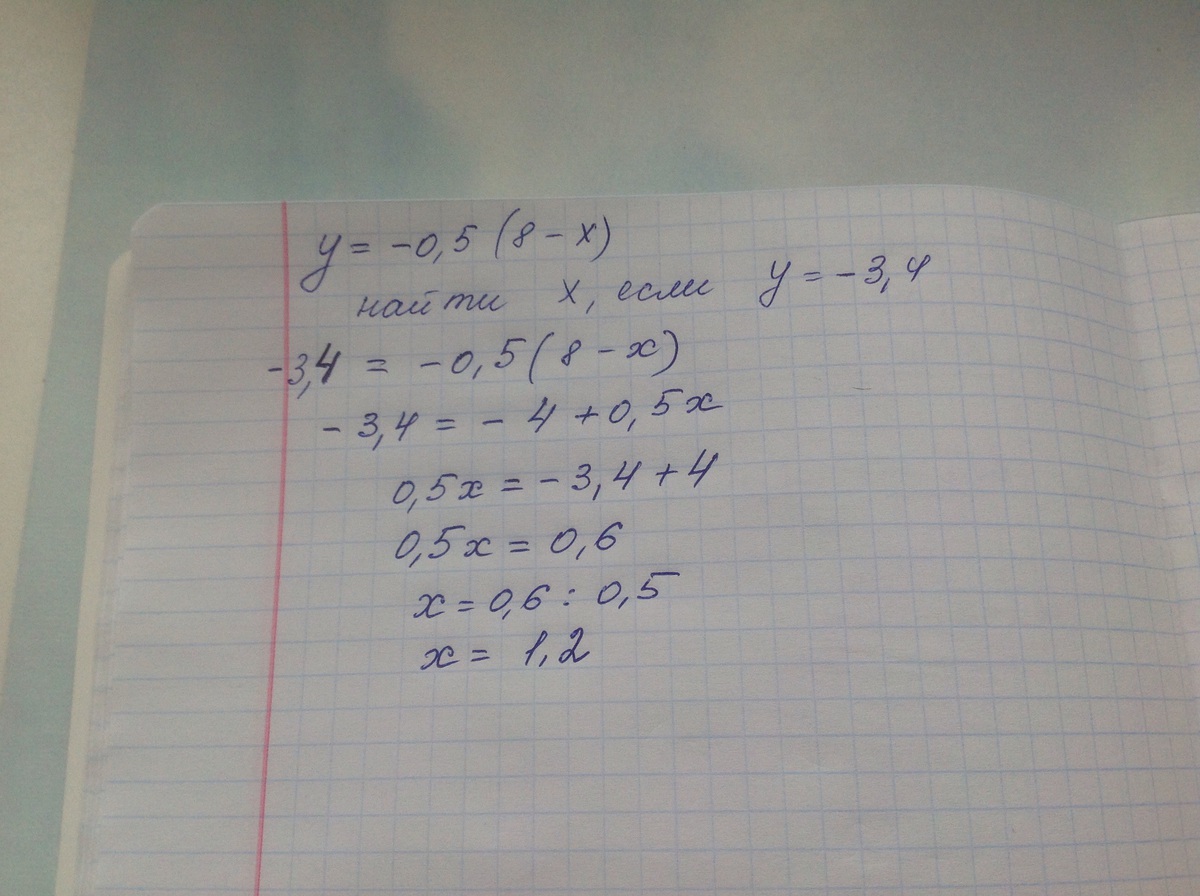 y = -0,5 (8 - x)
найти x, если y = -3,4
-3,4 = -0,5 (8 - x)
-3,4 = -4 + 0,5x
0,5x = -3,4 + 4
0,5x = 0,6
x = 0,6 : 0,5
x = 1,2